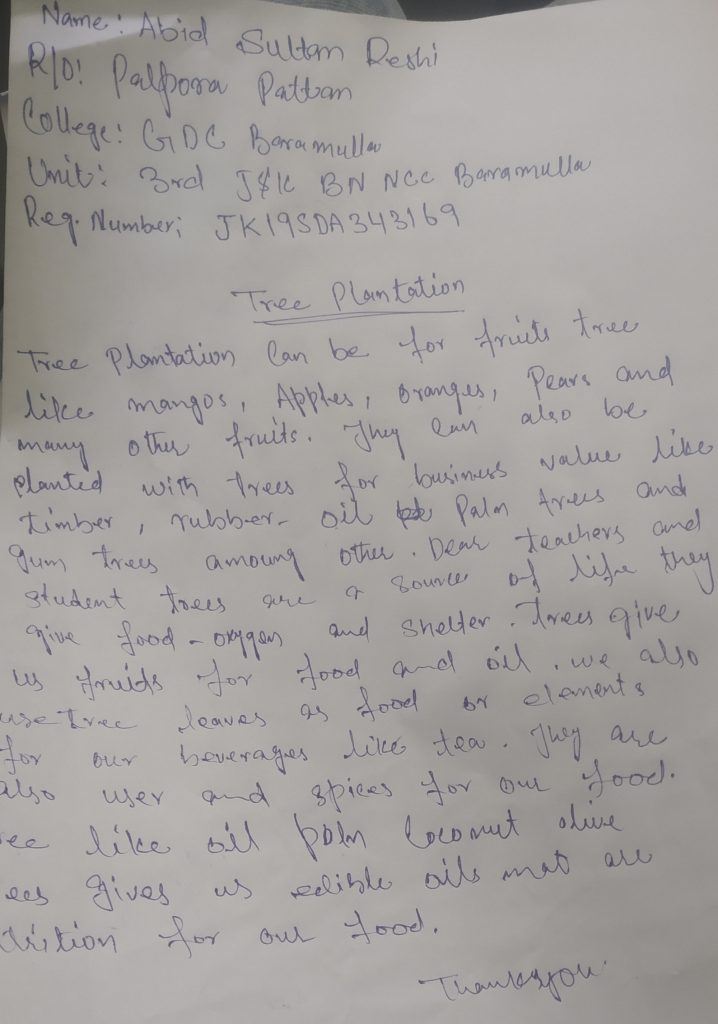 Name: Abid Sultan Reshi
R/O: Palpora Pattan
College: GDC Baramulla
Unit: 3rd J&K BN NCC Baramulla
Reg. Number; JK19SDA343169
Tree Plantation
Tree Plantation Can be for fruits tree
like mangos, Apples, oranges, Pears and
many other fruits. They can also be
planted with trees for business value like
timber, rubber- oil Palm trees and
gum trees amoung other. Dear teachers and
student trees are a source of life they
give food - oxygen and shelter. trees give
us fruids for food and oil. we also
use tree leaves as food or elements
for our beverages like tea. They are
also user and spices for our food.
ee like oil palm Coconut olive
ees gives us edible oils mat are
trition for our food.
Thankyou.